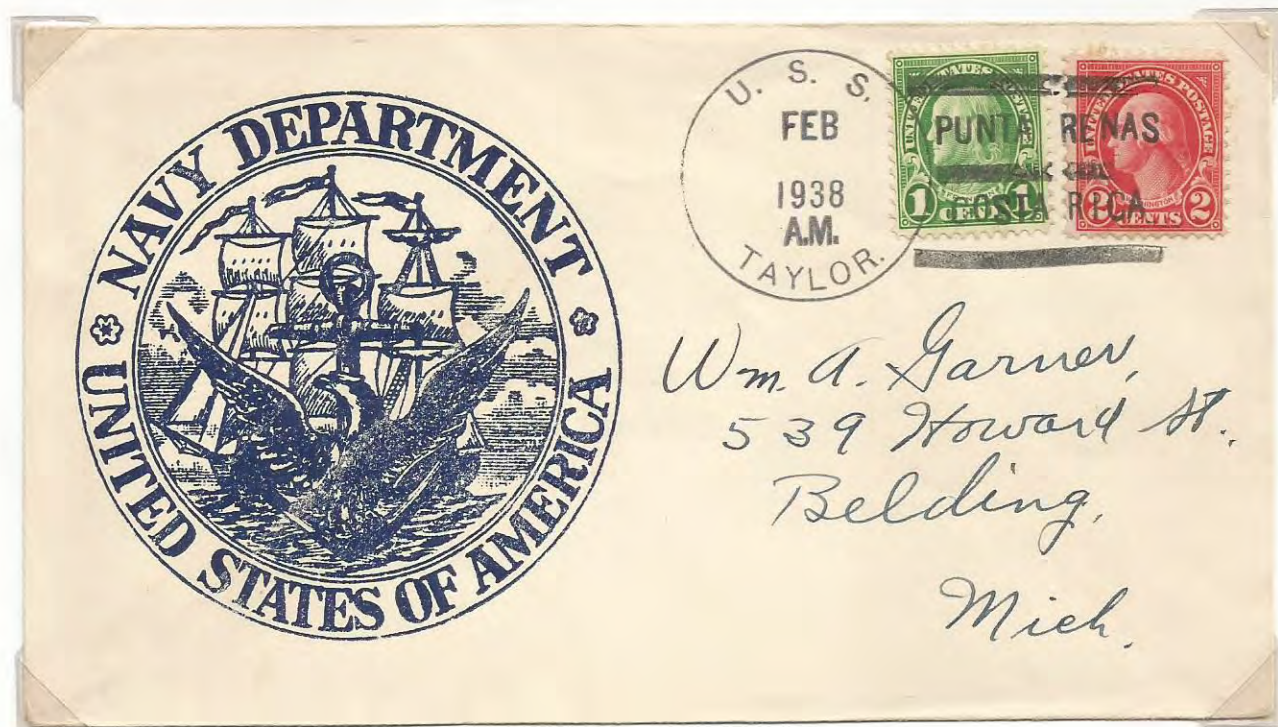 NAVY DEPARTMENT
UNITED STATES OF AMERICA
U. S. S.
FEB
1938
A.M.
TAYLOR.
PUNTA RENAS
COSTA RICA
UNITED STATES POSTAGE
1 CENT 1
2 CENTS 2
Wm. A. Garner,
539 Howard St.,
Belding,
Mich.